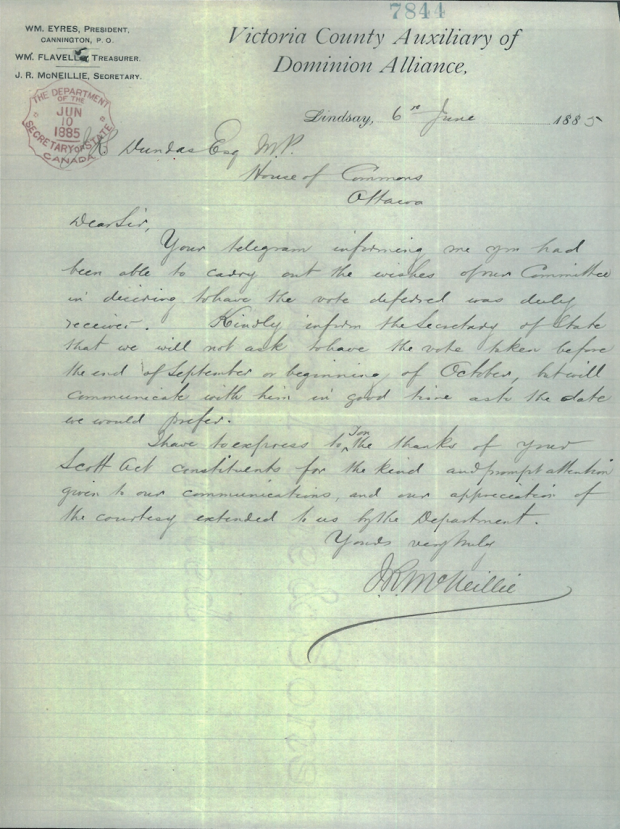 7844
WM. EYRES, PRESIDENT,
CANNINGTON, P. O.
WM. FLAVELLE, TREASURER.
J. R. McNEILLIE, SECRETARY.
Victoria County Auxiliary of
Dominion Alliance,
THE DEPARTMENT
OF THE
JUN
10
1885
SECRETARY OF STATE
CANADA
Lindsay, 6th June 1885
Dundas Esq M.P.
House of Commons
Ottawa
Dear Sir,
Your telegram informing me you had
been able to carry out the wishes of our Committee
in desiring to have the vote deferred was duly
received. Kindly inform the Secretary of State
that we will not ask to have the vote taken before
the end of September or beginning of October, but will
communicate with him in good time as to the date
we would prefer.
I have to express to you the thanks of your
Scott Act constituents for the kind and prompt attention
given to our communications, and our appreciation of
the courtesy extended to us by the Department.
Yours very truly
J.R. McNeillie